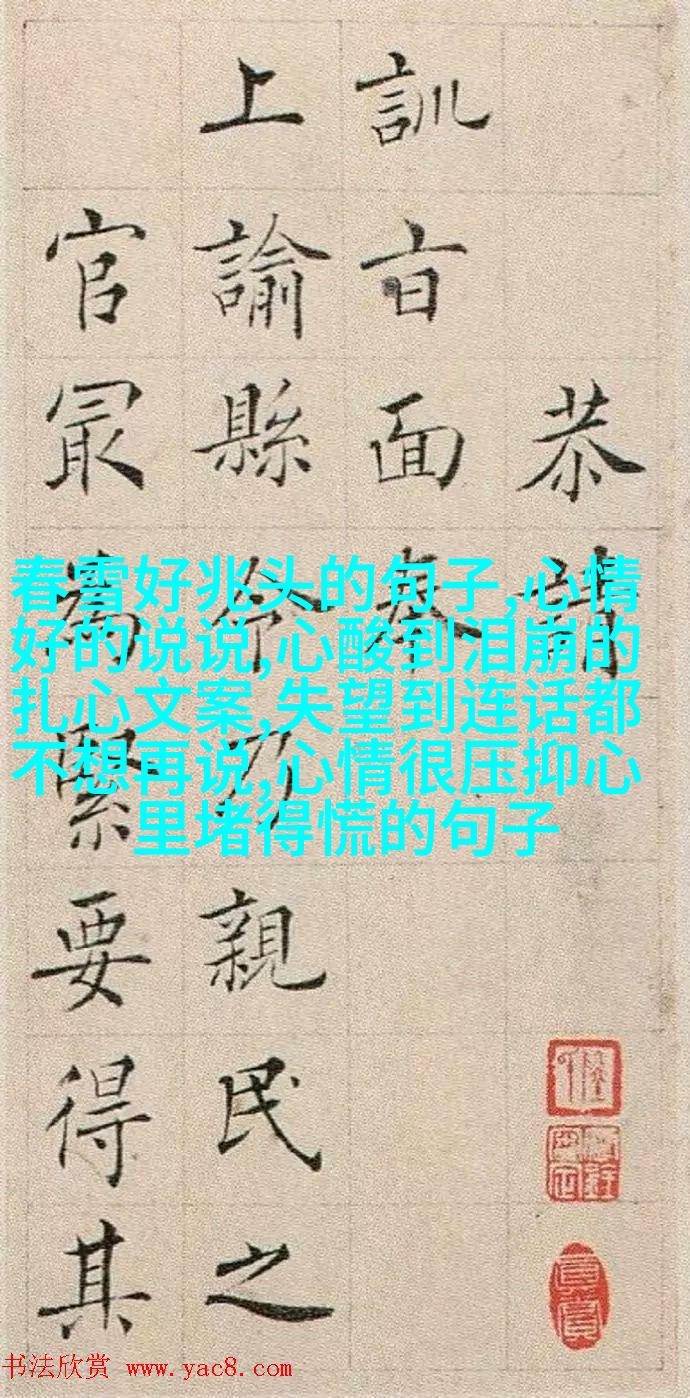 恭請
訓旨面奉
上諭縣令乃親民之
官冣為緊要得其
春雪好兆头的句子,心情
好的说说,心酸到泪崩的
扎心文案,失望到连话都
不想再说,心情很压抑心
里堵得慌的句子
书法欣赏 www.yac8.com